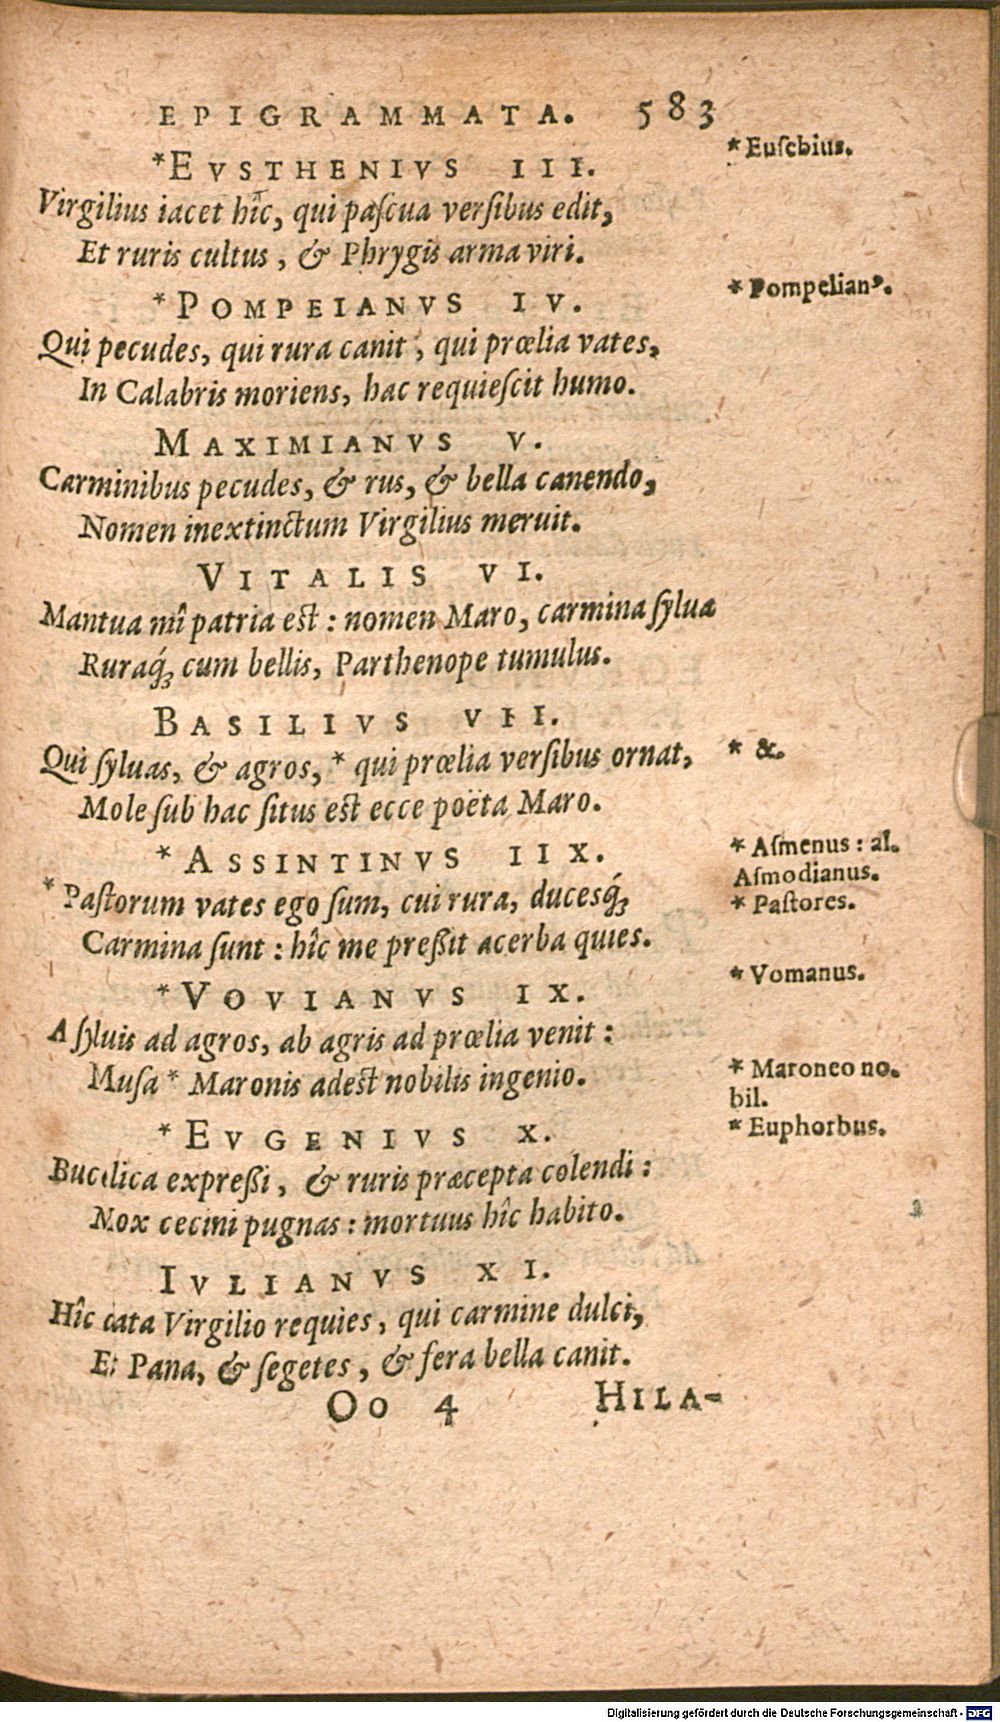 EPIGRAMMATA. 583
*EVSTHENIVS III.
*Euſebius.
Virgilius iacet hîc, qui paſcua verſibus edit,
Et ruris cultus, & Phrygis arma viri.
*POMPEIANVS IV.
*Pompelianꝰ.
Qui pecudes, qui rura canit, qui prœlia vates,
In Calabris moriens, hac requieſcit humo.
MAXIMIANVS V.
Carminibus pecudes, & rus, & bella canendo,
Nomen inextinctum Virgilius meruit.
VITALIS VI.
Mantua mî patria est: nomen Maro, carmina ſyluæ
Ruraq́ꝫ cum bellis, Parthenope tumulus.
BASILIVS VII.
Qui ſyluas, & agros, * qui prœlia verſibus ornat,
* &.
Mole ſub hac ſitus est ecce poëta Maro.
*ASSINTINVS IIX.
* Aſmenus: al.
Aſmodianus.
*Paſtorum vates ego ſum, cui rura, duceſq́ꝫ
* Paſtores.
Carmina ſunt: hîc me preßit acerba quies.
*VOVIANVS IX.
*Vomanus.
A ſyluis ad agros, ab agris ad prœlia venit:
Muſa * Maronis adest nobilis ingenio.
* Maroneo no.
bil.
*EVGENIVS X.
*Euphorbus.
Bucolica expreßi, & ruris præcepta colendi:
Mox cecini pugnas: mortuus hîc habito.
IVLIANVS XI.
Hîc data Virgilio requies, qui carmine dulci,
Et Pana, & ſegetes, & fera bella canit.
Oo 4 HILA-
Digitalisierung gefördert durch die Deutsche Forschungsgemeinschaft - DFG